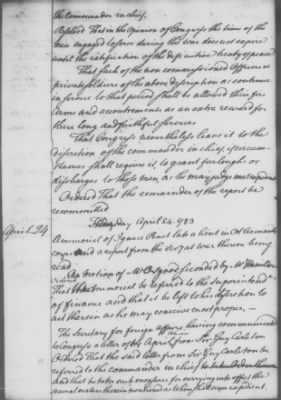 The Commander in chief.
Resolved That in the opinion of Congress the time of the
men engaged to serve during the war does not expire
until the ratification of the definitive treaty of peace
That such of the non commissioned Officers &
private soldiers of the above description as continue
in service to that period shall be allowed their fire
arms and accoutrements as an extra reward for
their long and faithful services
That Congress nevertheless leave it to the
discretion of the commander in chief, if circum-
stances shall require it, to grant furloughs or
discharges to those men as he may judge most expedient
Ordered That the remainder of the report be
recommitted
April. 24
Thursday April 24. 1783
A memorial of late a lieut in Col Armand's
corps and a report from the Secy at war thereon being
read
On motion of Mr Osgood seconded by Mr Hamilton
Ordered That the memorial be referred to the Superintendt
of finance and that it be left to his discretion to
act therein as he may conceive most proper.
The Secretary for foreign affairs having communicated
to Congress a letter of April from Sir Guy Carleton
Ordered That the said letter from Sir Guy Carleton be
referred to the commander in chief
and that he take such measures for carrying into effect the
several matters therein mentioned as to him shall seem expedient